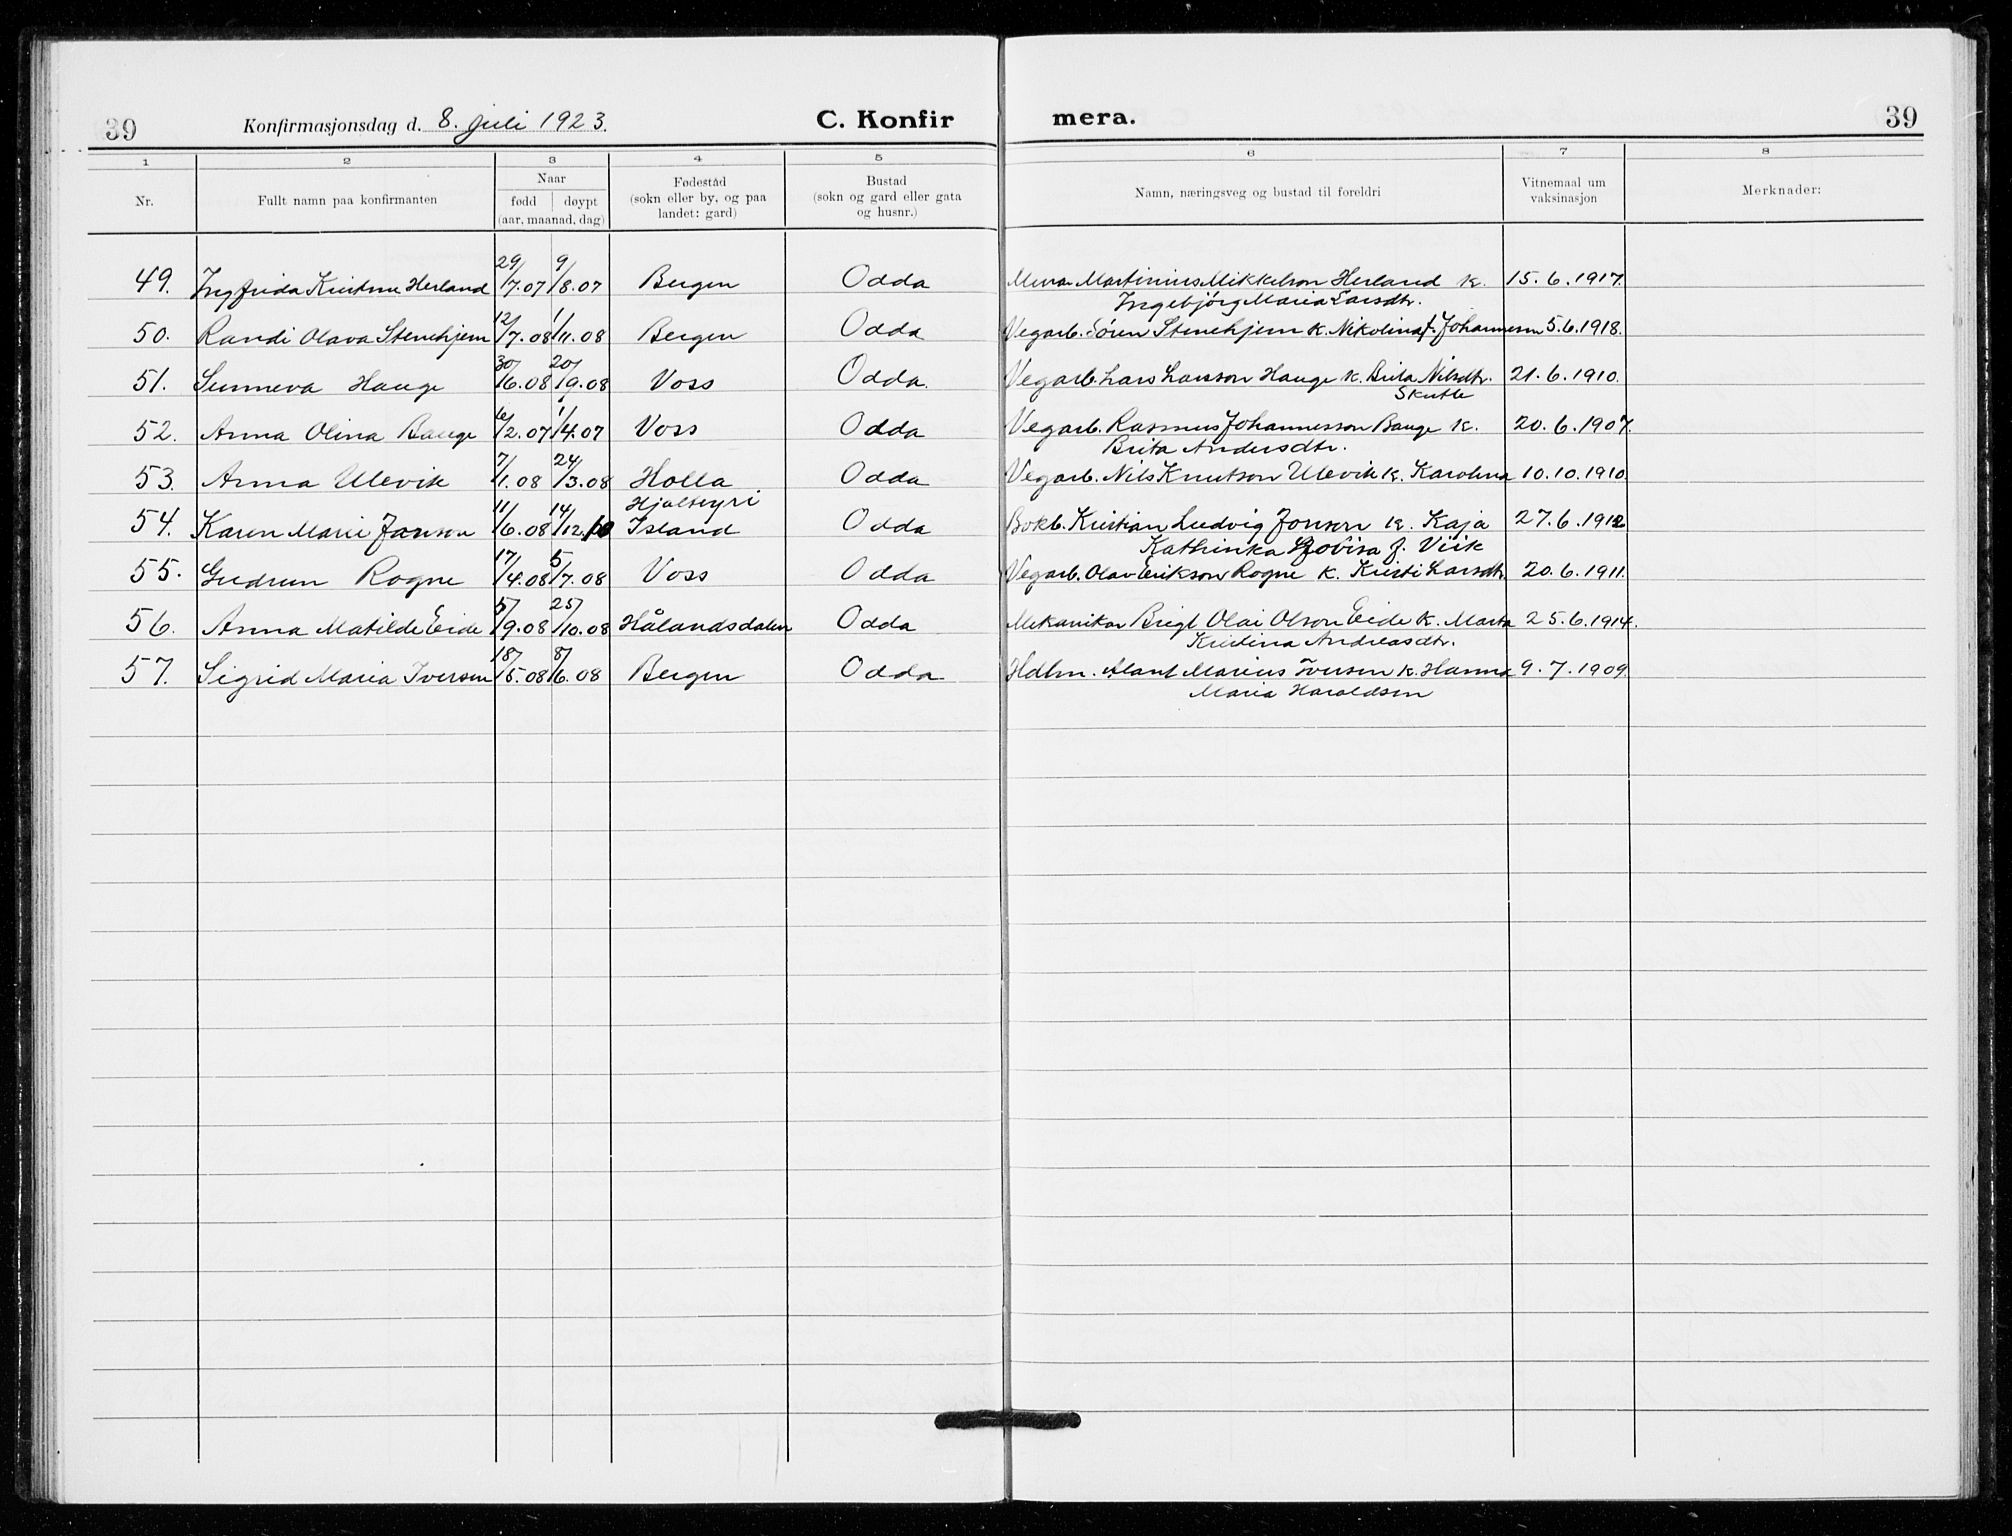 39 Konfirmasjonsdag d. 8. juli 1923. C. Konfir mera. 39
1 2 3 4 5 6 7 8
Nr. Fullt namn paa konfirmanten Naar Fødeståd Bustad Namn, næringsveg og bustad til foreldri Vitnemaal um Merknader:
fødd døypt (sokn eller by, og paa (sokn og gard eller gata vaksinasjon
(aar, maanad, dag) landet: gard) og husnr.)
49. Ingfrida Kristine Herland 29/7.07 9/8.07 Bergen Odda Martinius Mikkelson Herland k. 15.6.1917.
Ingebjörg Maria Larsdtr.
50. Randi Olava Stenehjem 12/7.08 1/11.08 Bergen Odda Vegarb. Sören Stenehjem k. Nikolina f. Johannesen 5.6.1918.
51. Sunneva Hauge 30/6.08 20/9.08 Voss Odda. Vegarb. Lars Larsson Hauge k. Brita Nilsdtr. 21.6.1910.
Skutle
52. Anna Olina Bauge 6/2.07 1/4.07 Voss Odda Vegarb. Rasmus Johannesson Bauge k. 20.6.1907.
Brita Andersdtr.
53. Anna Ulevik 7/1.08 24/3.08 Holla Odda Vegarb. Nils Knutson Ulevik k. Karolina 10.10.1910.
Hjalteyri
54. Karen Marie Jonson 11/6.08 14/12.10 Island Odda Bokb. Kristian Ludvig Jonson k. Kaja 27.6.1912
Kathinka f. Viik
55. Gudrun Rogne 17/4.08 5/7.08 Voss Odda Vegarb. Olav Erikson Rogne k. Kristi Larsdtr. 20.6.1911.
56. Anna Matilde Eide 5/9.08 25/10.08 Hålandsdalen Odda Mekanikar Brigt Olai Olson Eide k. Marta 25.6.1914.
Kristina Andreasdtr.
57. Sigrid Maria Iversen 18/5.08 8/6.08 Bergen Odda Hdlm. Marius Iversen k. Hanna 9.7.1909.
Maria Haraldsen